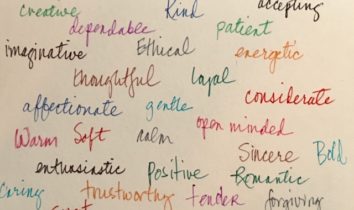 creative Kind accepting
dependable patient
imaginative Ethical energetic
thoughtful loyal
affectionate gentle considerate
Warm Soft calm open minded
Sincere Bold
enthusiastic Positive Romantic
caring trustworthy tender forgiving